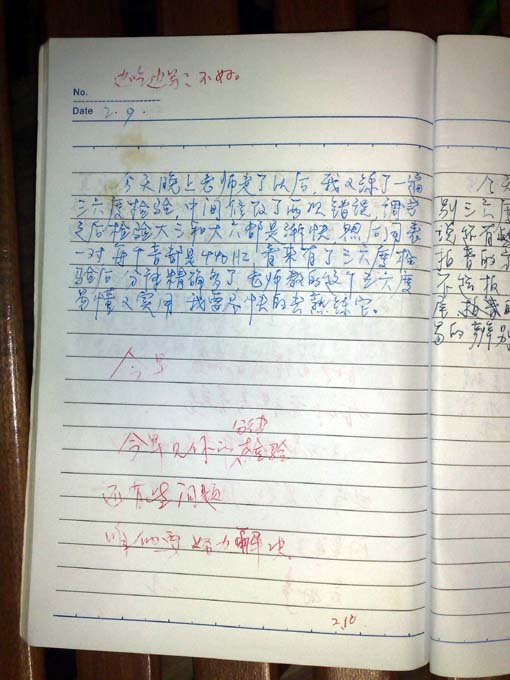 边吃边写：不好。
No.
Date 2.9.
今天晚上老师走了以后，我又练了一遍
三六度检验，中间修改了两次错误，调完
之后检验大三和大六都是渐快，然后用表
一对每个音都是440Hz，看来有了三六度检
验后，分律精确多了，老师教的这个三六度
易懂又实用，我要尽快的去熟练它。
今早
今早见你的分律检验
还有些问题
咱们要努力解决
2.10
今天
别三六度
现还有
拍音的
不给板
度
音的辨别